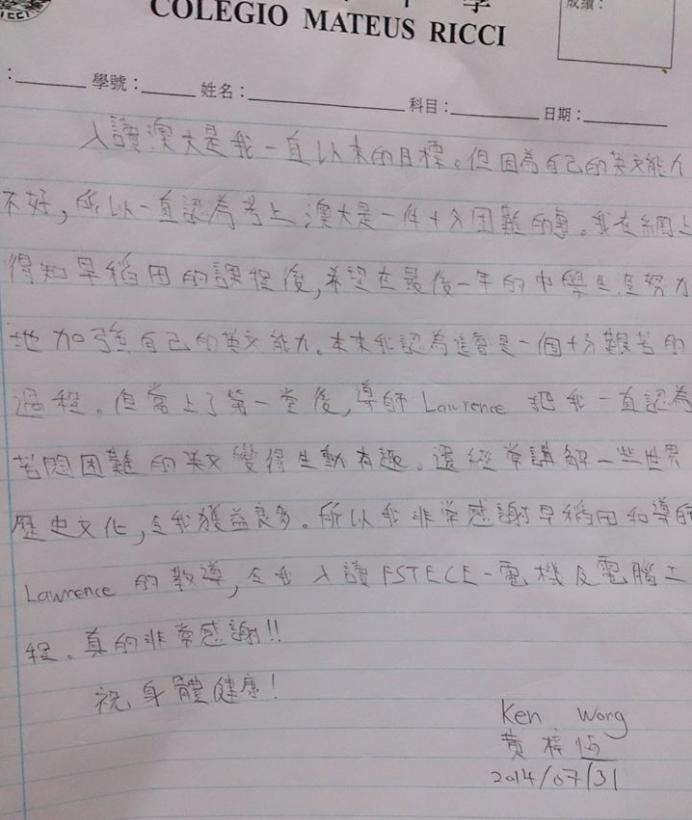 RICCI
學
COLEGIO MATEUS RICCI
成績：
：______ 學號：______ 姓名：______ 科目：______ 日期：______
入讀澳大是我一直以來的目標。但因為自己的英文能力
不好，所以一直認為考上澳大是一件十分困難的事。我在網上
得知早稻田的課程後，希望在最後一年的中學生涯努力
地加強自己的英文能力。本來我認為這會是一個十分艱苦的
過程。但當上了第一堂後，導師 Lawrence 把我一直認為
苦悶困難的英文變得生動有趣。還經常講解一些世界
歷史文化，令我獲益良多。所以我非常感謝早稻田和導師
Lawrence 的教導，令我入讀 FSTECE-電機及電腦工
程。真的非常感謝!!
祝身體健康！
Ken Wong
黃梓
2014/07/31